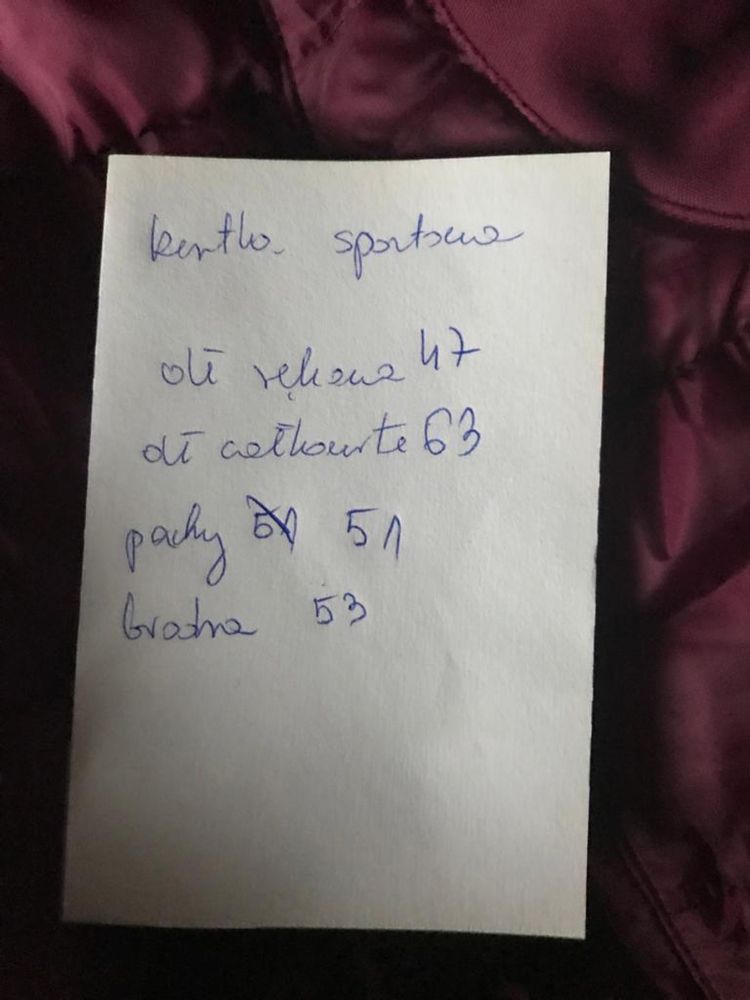 kurtka sportowa
dł rękawa 47
dł całkowite 63
pachy 51 51
biodra 53